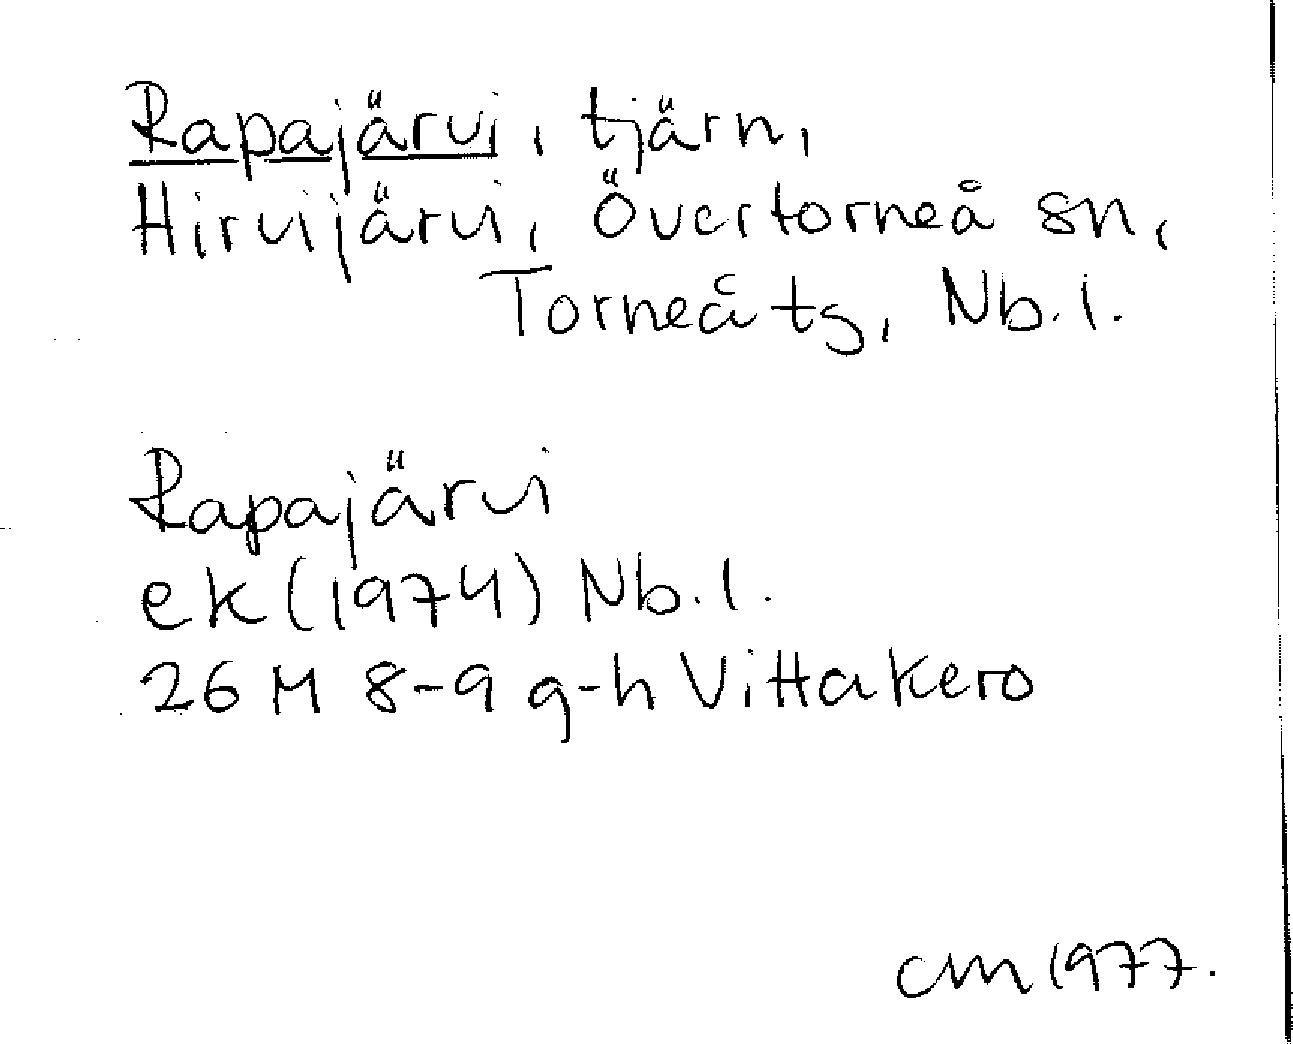 Rapajärvi, tjärn,
Hirvijärvi, Övertorneå sn,
Torneå tg, Nb.l.
Rapajärvi
ek (1974) Nb.l.
26 M 8-9 g-h Vittakero
cm 1977.